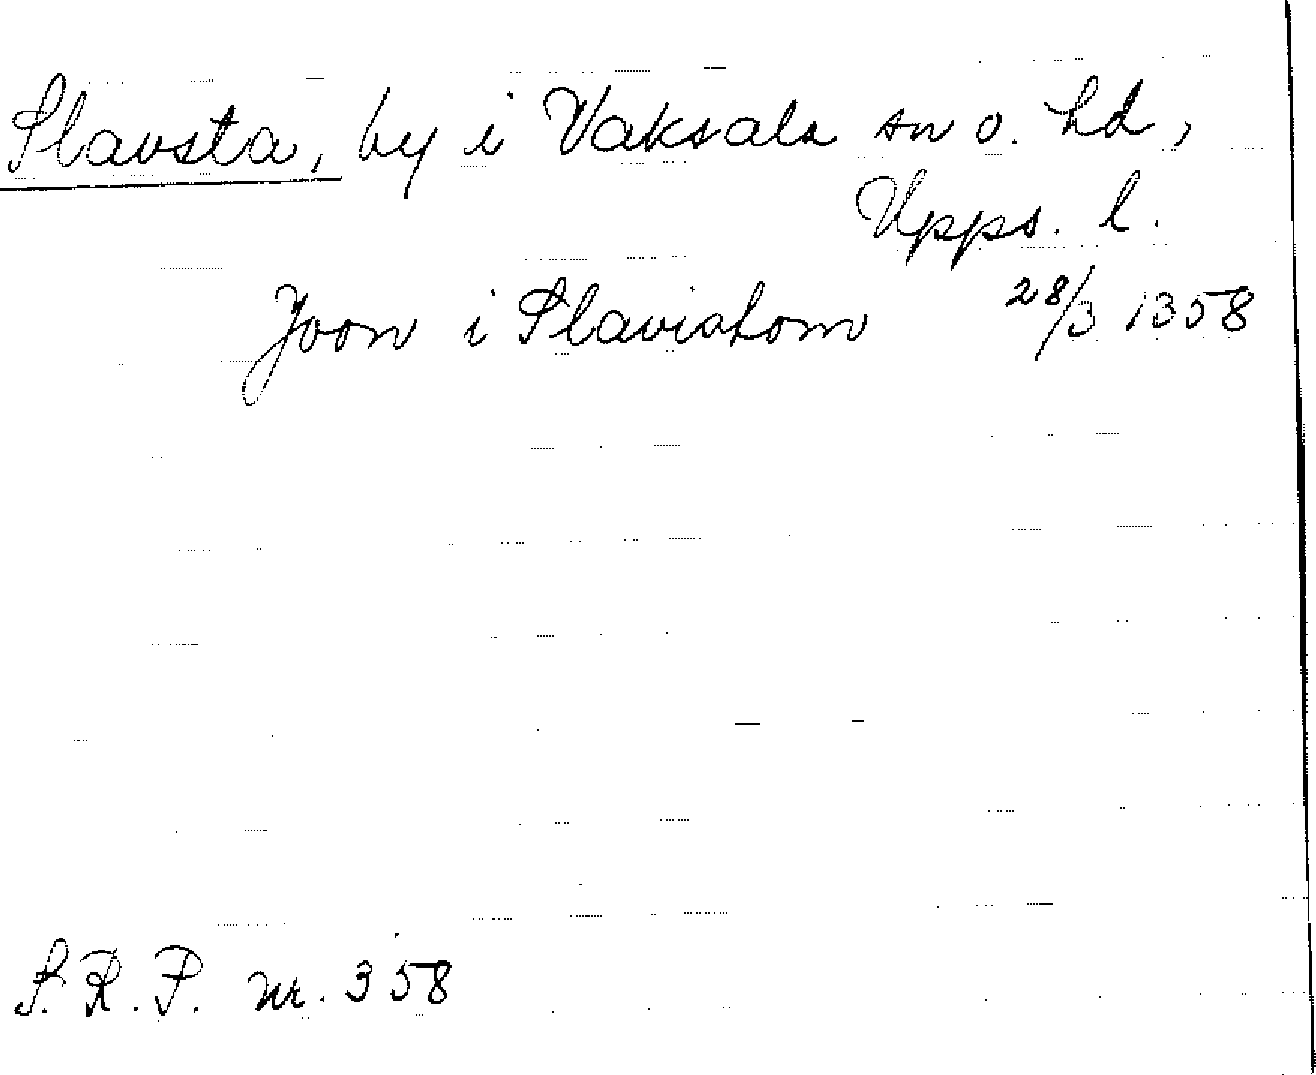 Slavsta, by i Vaksala sn o. hd,
Upps. l.
Joon i Slavishom 28/3 1358
S.R.P. nr. 358